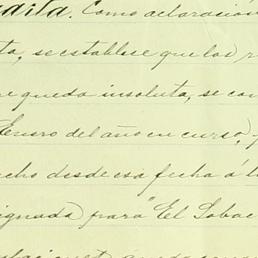 Como declaración
ta, se establece que los r
re queda insoluta, se con
Enero del año en curso,
cho desde esa fecha á l
signada para "El Sobac